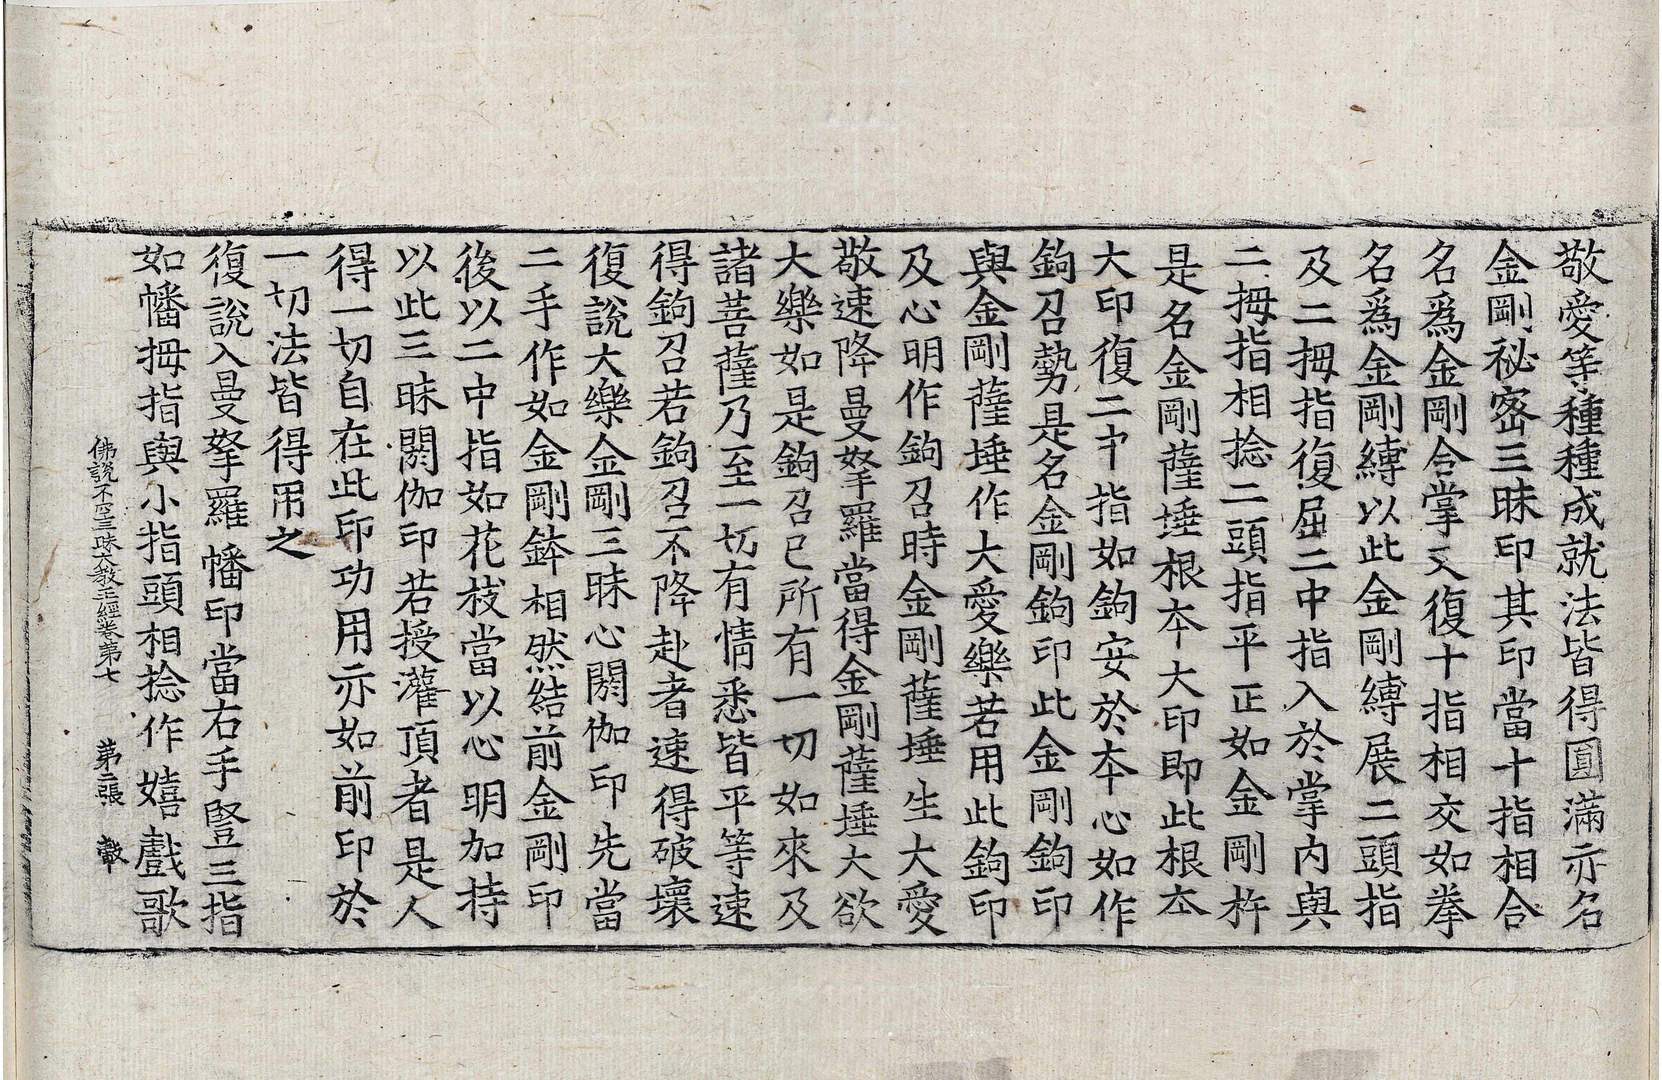 敬愛等種種成就法皆得圓滿亦名
金剛祕密三昧印其印當十指相合
名爲金剛合掌又復十指相交如拳
名爲金剛縛以此金剛縛展二頭指
及二拇指復屈二中指入於掌內與
二拇指相捻二頭指平正如金剛杵
是名金剛薩埵根本大印即此根本
大印復二中指如鉤安於本心如作
鉤召勢是名金剛鉤印此金剛鉤印
與金剛薩埵作大愛樂若用此鉤印
及心明作鉤召時金剛薩埵生大愛
敬速降曼拏羅當得金剛薩埵大欲
大樂如是鉤召已所有一切如來及
諸菩薩乃至一切有情悉皆平等速
得鉤召若鉤召不降赴者速得破壞
復說大樂金剛三昧心閼伽印先當
二手作如金剛鉢相然結前金剛印
後以二中指如花枝當以心明加持
以此三昧閼伽印若授灌頂者是人
得一切自在此印功用亦如前印於
一切法皆得用之
復說入曼拏羅幡印當右手豎三指
如幡拇指與小指頭相捻作嬉戲歌
佛說不空三昧大教王經卷第七 第二張 轂